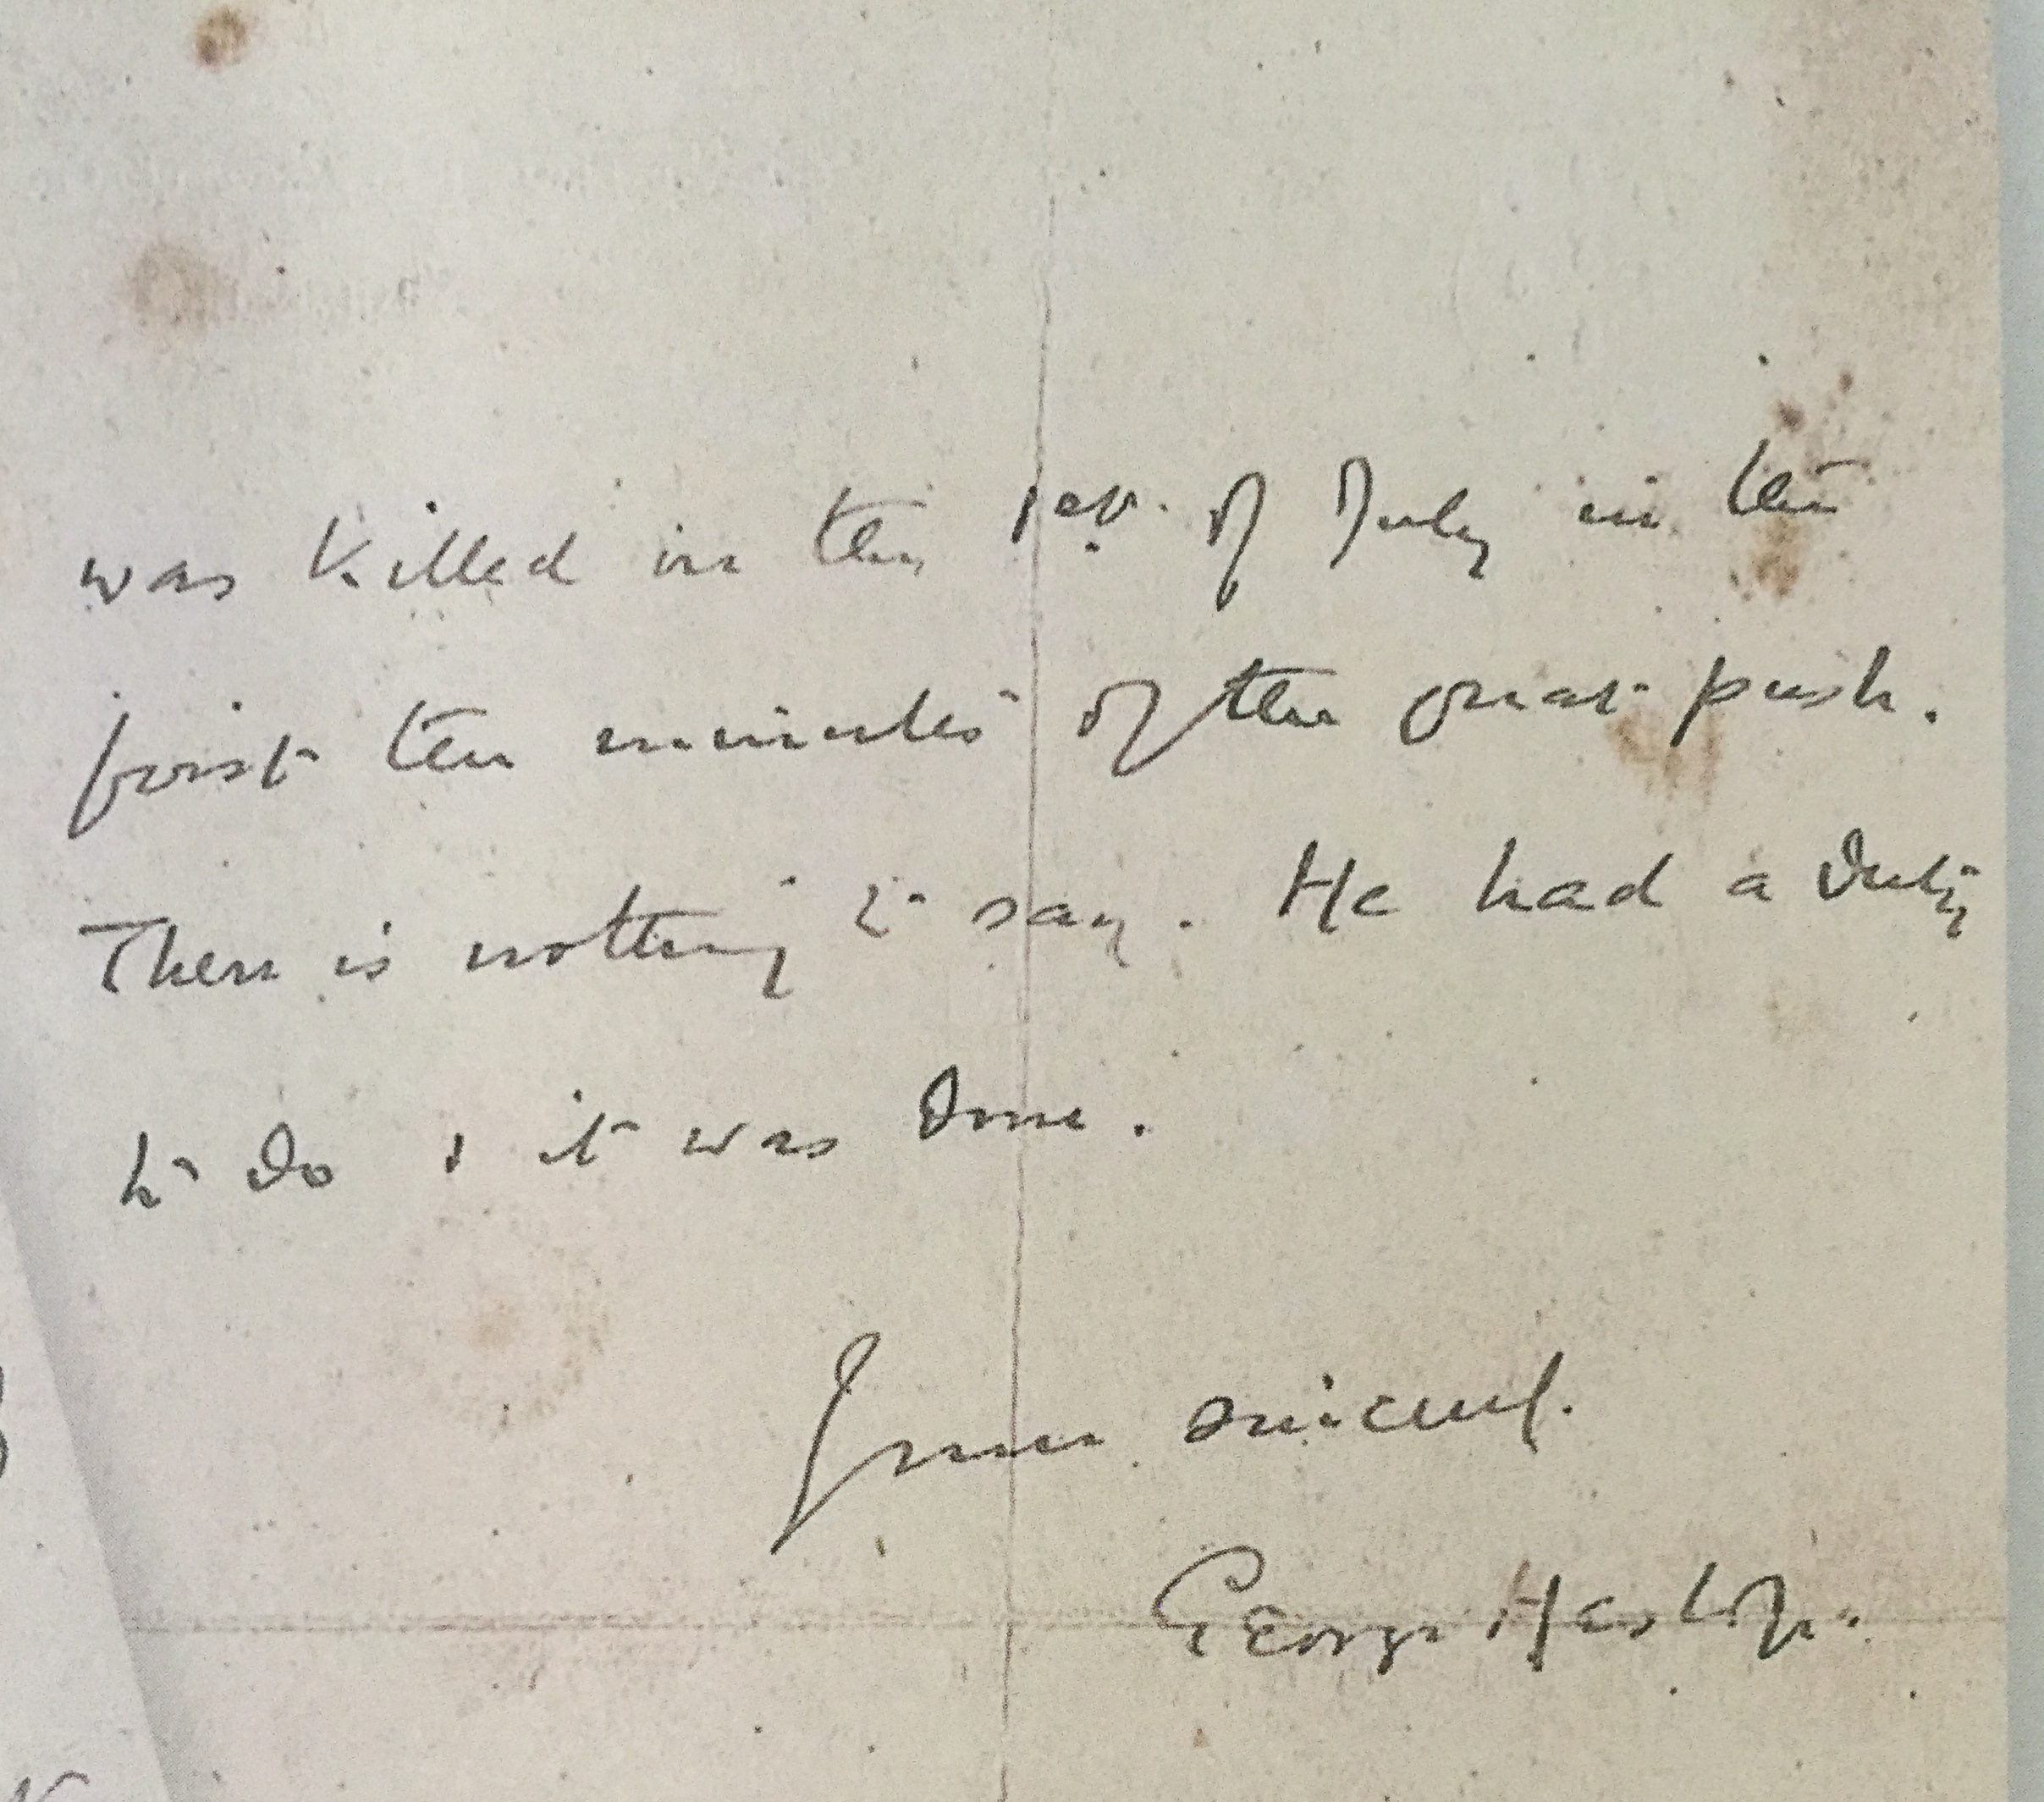 was killed in the 1st. of July in the
first ten minutes of the great push.
There is nothing to say. He had a duty
to do & it was done.
Yours sincerely.
George Heslop.